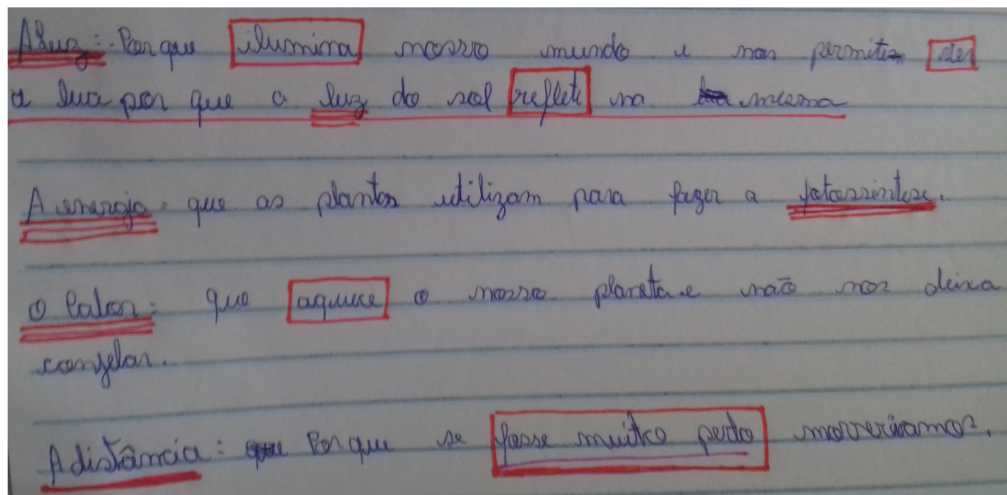 A luz: Porque ilumina nosso mundo e nos permite ver
a lua por que a luz do sol reflete na mesma
A energia: que as plantas utilizam para fazer a fotossintese.
O Calor: que aquece o nosso planeta e não nos deixa
congelar.
A distância: Porque se fosse muitro perto morreriamos.